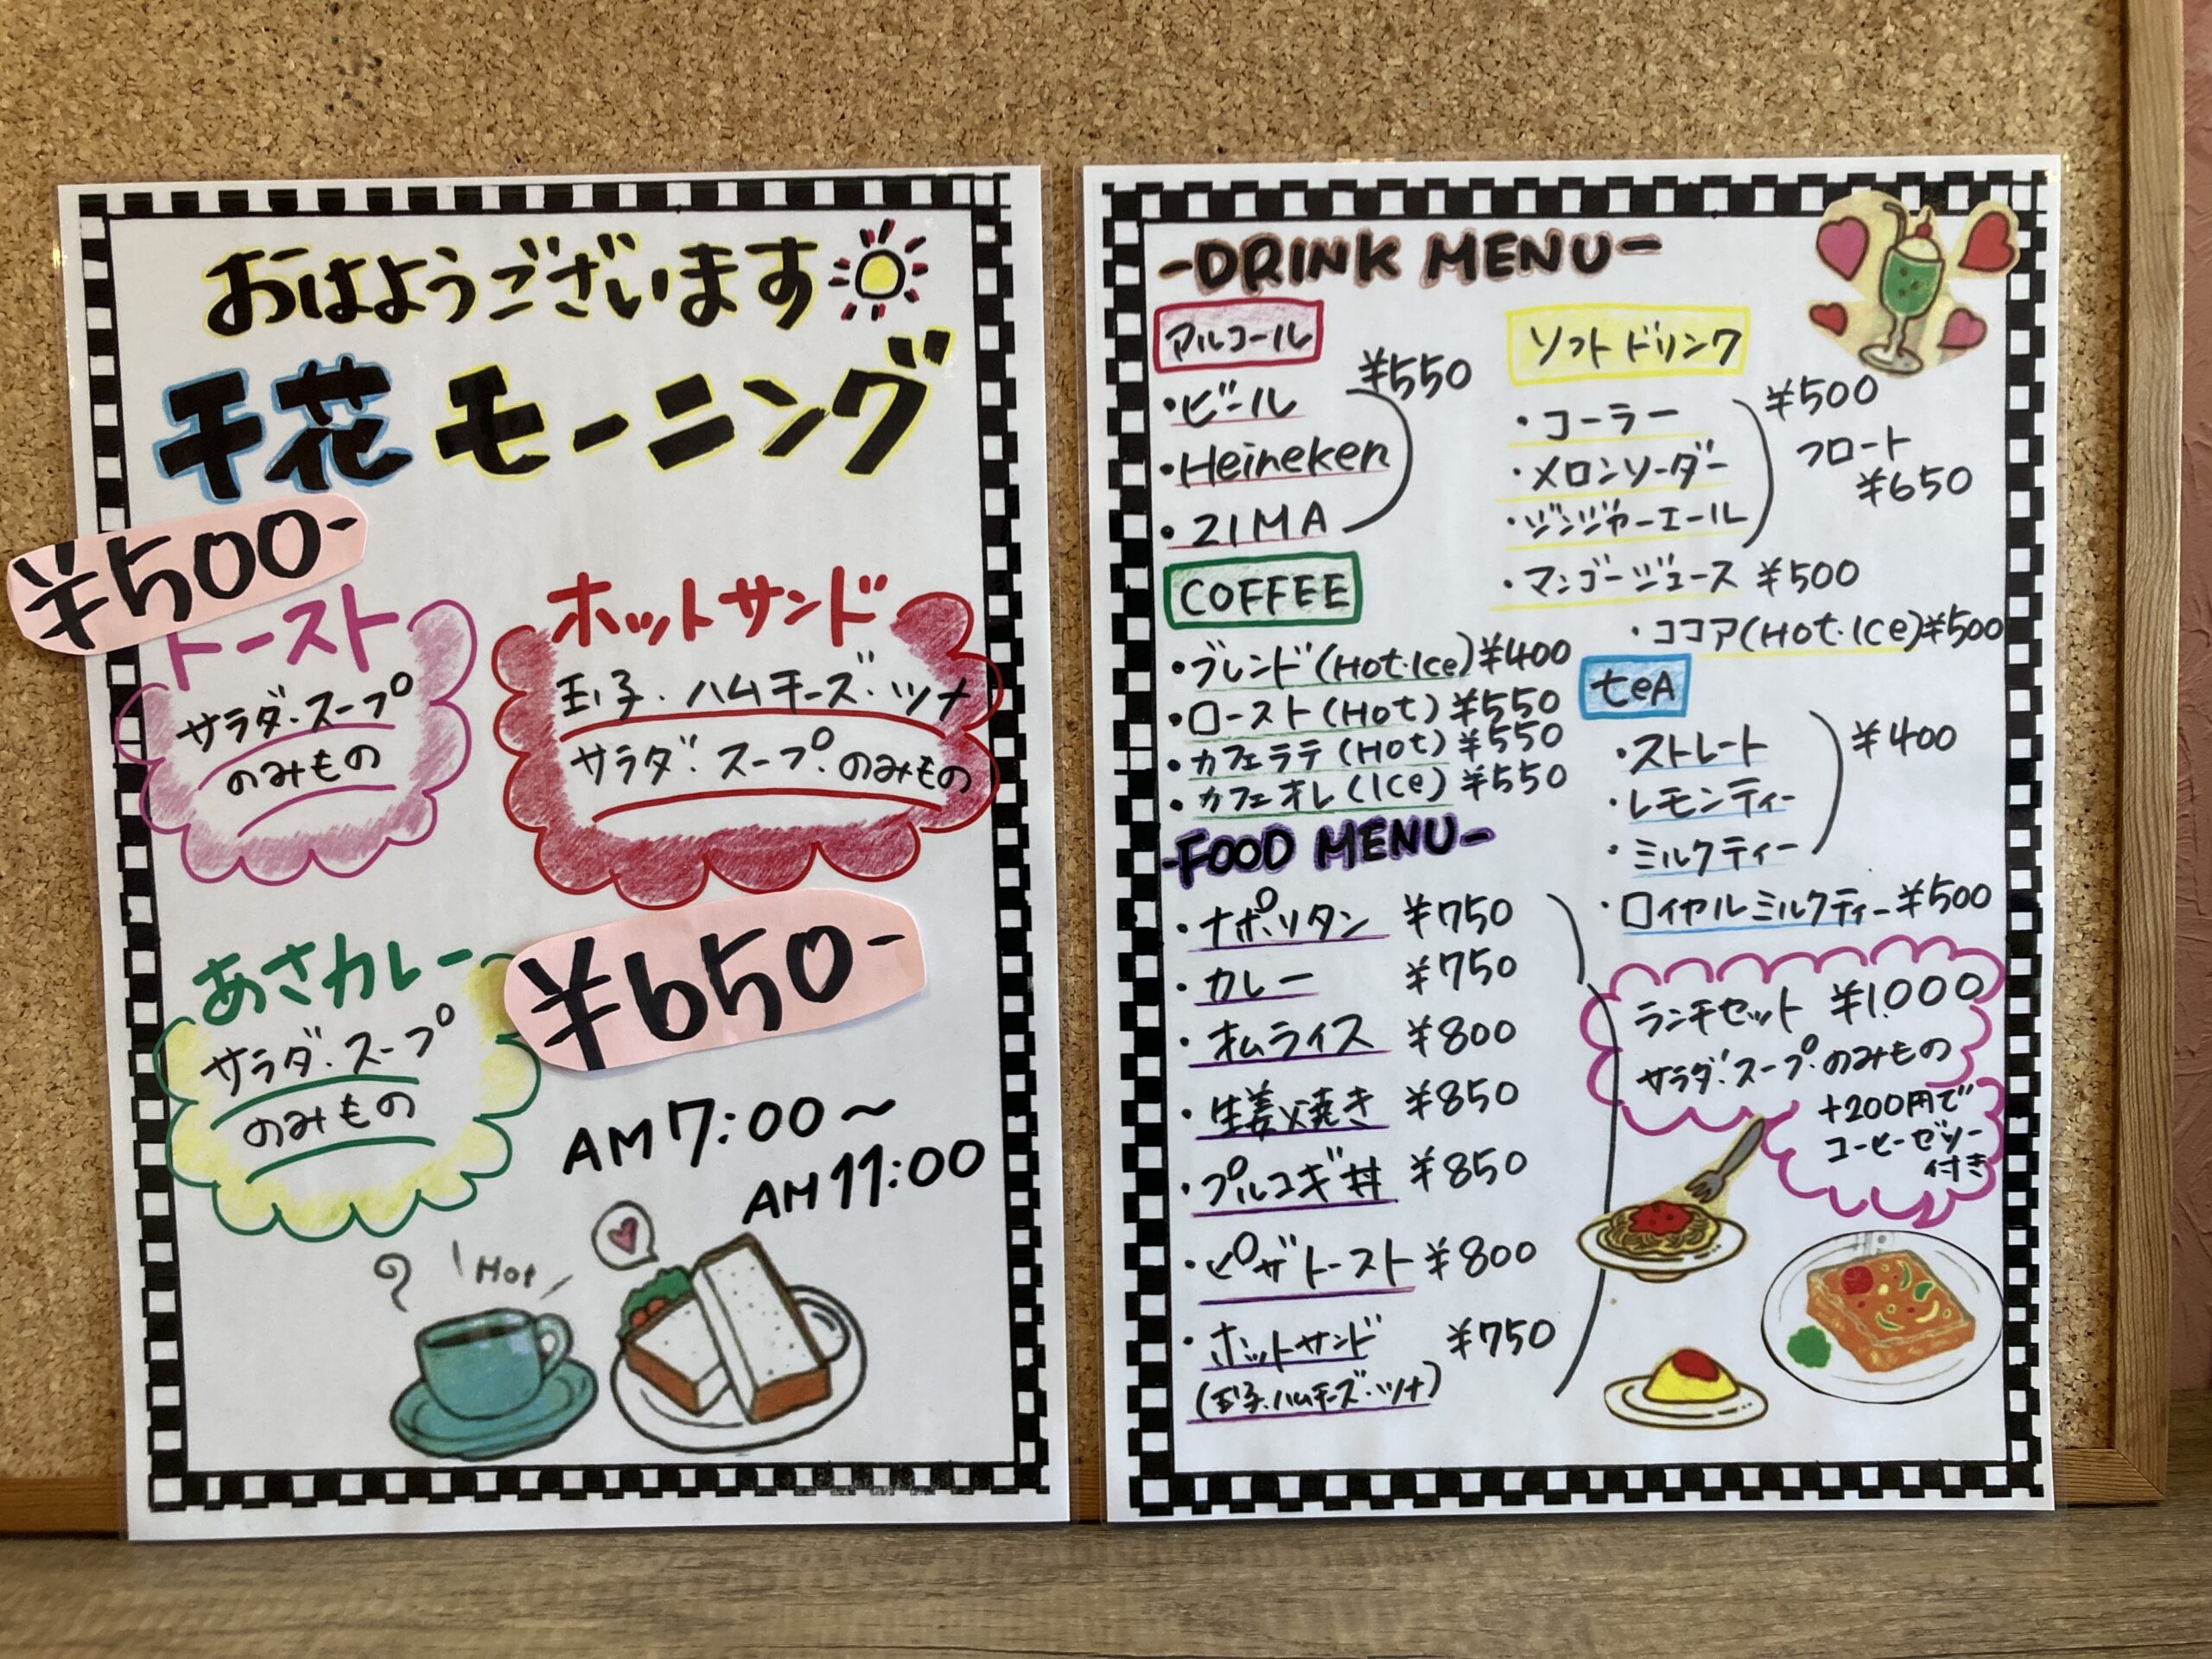 おはようございます
千花 モーニング
¥500-
トースト
サラダ・スープ
のみもの
ホットサンド
玉子・ハムチーズ・ツナ
サラダ・スープ・のみもの
あさカレー
サラダ・スープ
のみもの
¥650-
AM 7:00〜
AM 11:00
Hot
-DRINK MENU-
アルコール
・ビール
・Heineken
・ZIMA
¥550
ソフトドリンク
・コーラー
・メロンソーダー
・ジンジャーエール
¥500
フロート
¥650
・マンゴージュース ¥500
・ココア(Hot・Ice)¥500
COFFEE
・ブレンド(Hot・Ice)¥400
・ロースト(Hot) ¥550
・カフェラテ(Hot) ¥550
・カフェオレ(Ice) ¥550
teA
・ストレート
・レモンティー
・ミルクティー
¥400
・ロイヤルミルクティー ¥500
-FOOD MENU-
・ナポリタン ¥750
・カレー ¥750
・オムライス ¥800
・生姜焼き ¥850
・プルコギ丼 ¥850
・ピザトースト ¥800
・ホットサンド ¥750
(玉子・ハムチーズ・ツナ)
ランチセット ¥1,000
サラダ・スープ・のみもの
+200円で
コーヒーゼリー
付き